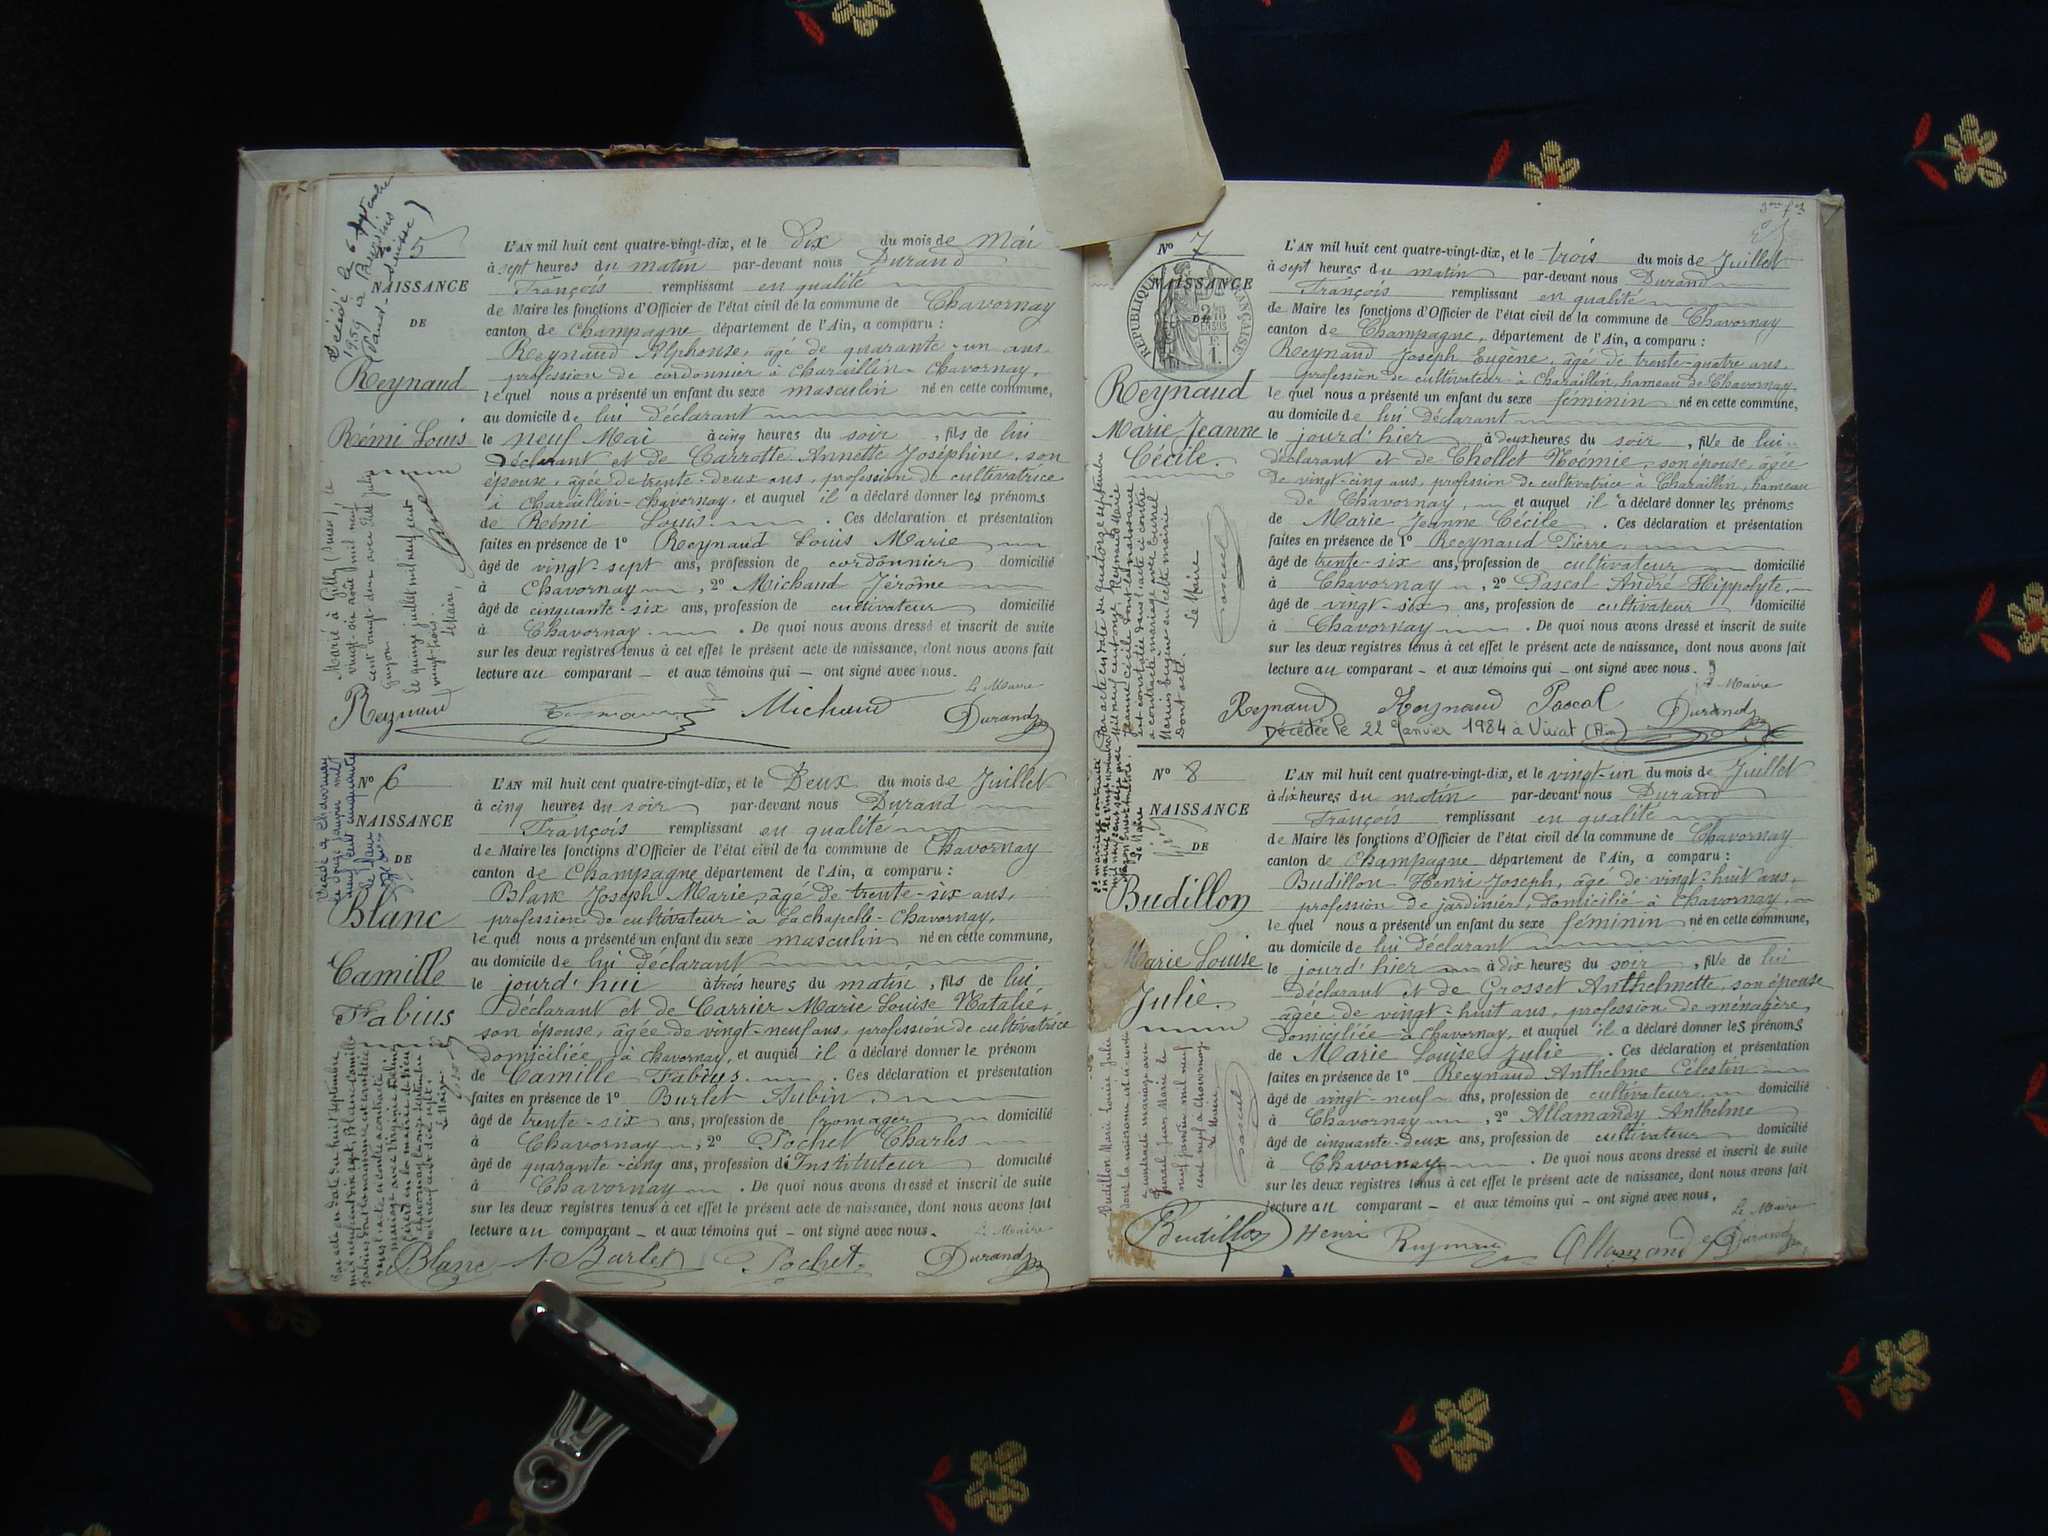 5
L'AN mil huit cent quatre-vingt-dix, et le Dix du mois de Mai
à sept heures du matin par-devant nous Durand
NAISSANCE
François remplissant en qualité
de Maire les fonctions d'Officier de l'état civil de la commune de Chavornay
DE
canton de Champagne département de l'Ain, a comparu :
Reynaud Alphonse, âgé de quarante-un ans,
Reynaud
profession de cordonnier à Charaillin-Chavornay,
lequel nous a présenté un enfant du sexe masculin né en cette commune,
au domicile de lui déclarant
Rémi Louis
le neuf Mai à cinq heures du soir, fils de lui
déclarant et de Carrotte Annette Joséphine, son
épouse, âgée de trente-deux ans, profession de cultivatrice
à Charaillin-Chavornay. et auquel il a déclaré donner les prénoms
de Rémi Louis. Ces déclaration et présentation
faites en présence de 1° Reynaud Louis Marie
âgé de vingt-sept ans, profession de cordonnier domicilié
à Chavornay, 2° Michaud Jérôme
âgé de cinquante-six ans, profession de cultivateur domicilié
à Chavornay. De quoi nous avons dressé et inscrit de suite
sur les deux registres tenus à cet effet le présent acte de naissance, dont nous avons fait
lecture au comparant — et aux témoins qui — ont signé avec nous.
Le Maire
Reynaud Michaud Durand
Décédé le 6 septembre
1959 à
Marié à Gilly (Suisse), le
vingt-six août mil neuf
cent vingt-deux avec
Guyon
Le quinze juillet mil neuf cent
vingt-trois.
N° 6
L'AN mil huit cent quatre-vingt-dix, et le Deux du mois de Juillet
à cinq heures du soir par-devant nous Durand
NAISSANCE
François remplissant en qualité
de Maire les fonctions d'Officier de l'état civil de la commune de Chavornay
DE
canton de Champagne département de l'Ain, a comparu :
Blanc Joseph Marie, âgé de trente-six ans,
Blanc
profession de cultivateur à Lachapelle-Chavornay,
lequel nous a présenté un enfant du sexe masculin né en cette commune,
au domicile de lui déclarant
Camille
le jourd'hui à trois heures du matin, fils de lui
déclarant et de Carrier Marie Louise Natalie,
Fabius
son épouse, âgée de vingt-neuf ans, profession de cultivatrice
domiciliée à Chavornay, et auquel il a déclaré donner le prénom
de Camille Fabius. Ces déclaration et présentation
faites en présence de 1° Burlet Aubin
âgé de trente-six ans, profession de fromager domicilié
à Chavornay, 2° Pochet Charles
âgé de quarante-cinq ans, profession d'Instituteur domicilié
à Chavornay. De quoi nous avons dressé et inscrit de suite
sur les deux registres tenus à cet effet le présent acte de naissance, dont nous avons fait
lecture au comparant — et aux témoins qui — ont signé avec nous.
Le Maire
Blanc A Burlet Pochet Durand
N° 7
L'AN mil huit cent quatre-vingt-dix, et le trois du mois de Juillet
à sept heures du matin par-devant nous Durand
NAISSANCE
François remplissant en qualité
RÉPUBLIQUE FRANÇAISE
de Maire les fonctions d'Officier de l'état civil de la commune de Chavornay
canton de Champagne, département de l'Ain, a comparu :
Reynaud Joseph Eugène, âgé de trente-quatre ans,
profession de cultivateur à Charaillin, hameau de Chavornay
Reynaud
lequel nous a présenté un enfant du sexe féminin né en cette commune,
au domicile de lui déclarant
Marie Jeanne
le jourd'hier à deux heures du soir, fille de lui
Cécile.
déclarant et de Chollet Noémie, son épouse, âgée
de vingt-cinq ans, profession de cultivatrice à Charaillin, hameau
de Chavornay, et auquel il a déclaré donner les prénoms
de Marie Jeanne Cécile. Ces déclaration et présentation
faites en présence de 1° Reynaud Pierre,
âgé de trente-six ans, profession de cultivateur domicilié
à Chavornay, 2° Pascal André Hippolyte,
âgé de vingt-six ans, profession de cultivateur domicilié
à Chavornay. De quoi nous avons dressé et inscrit de suite
sur les deux registres tenus à cet effet le présent acte de naissance, dont nous avons fait
lecture au comparant — et aux témoins qui — ont signé avec nous.
Le Maire
Reynaud Reynaud Pascal Durand
Décédée le 22 Janvier 1984 à Viriat (Ain)
Le Maire
N° 8
L'AN mil huit cent quatre-vingt-dix, et le vingt-un du mois de Juillet
à dix heures du matin par-devant nous Durand
NAISSANCE
François remplissant en qualité
de Maire les fonctions d'Officier de l'état civil de la commune de Chavornay
DE
canton de Champagne département de l'Ain, a comparu :
Budillon Henri Joseph, âgé de vingt-huit ans,
Budillon
profession de jardinier, domicilié à Chavornay,
lequel nous a présenté un enfant du sexe féminin né en cette commune,
au domicile de lui déclarant
Marie Louise
le jourd'hier à dix heures du soir, fille de lui
déclarant et de Grosset Anthelmette, son épouse
Julie.
âgée de vingt-huit ans, profession de ménagère,
domiciliée à Chavornay, et auquel il a déclaré donner les prénoms
de Marie Louise Julie. Ces déclaration et présentation
faites en présence de 1° Reynaud Anthelme Célestin
âgé de vingt-neuf ans, profession de cultivateur domicilié
à Chavornay, 2° Allamandy Anthelme
âgé de cinquante-deux ans, profession de cultivateur domicilié
à Chavornay. De quoi nous avons dressé et inscrit de suite
sur les deux registres tenus à cet effet le présent acte de naissance, dont nous avons fait
lecture au comparant — et aux témoins qui — ont signé avec nous.
Le Maire
Budillon Henri Reynaud Allamand Durand